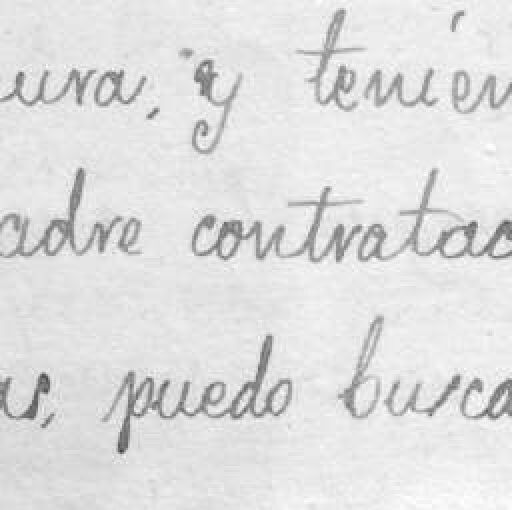 ura, y tenien
adre contratac
as, puedo busca